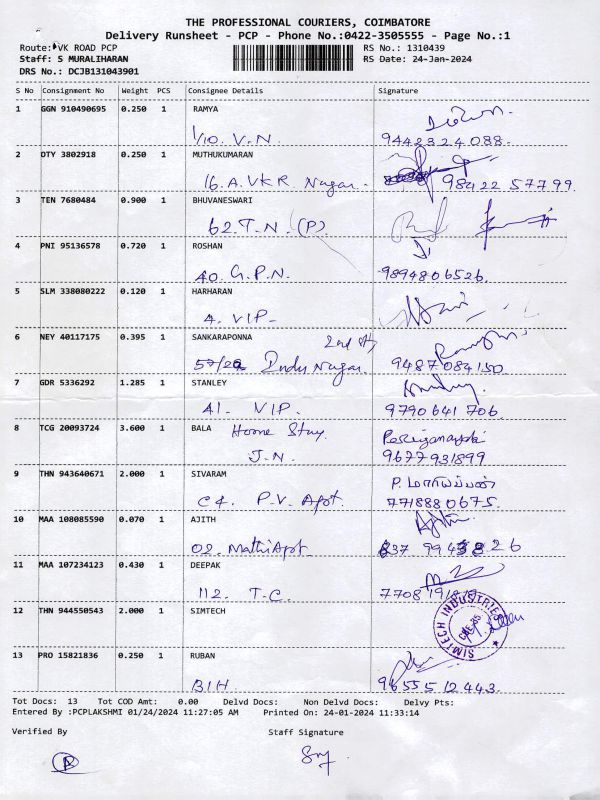 THE PROFESSIONAL COURIERS, COIMBATORE
Delivery Runsheet - PCP - Phone No.:0422-3505555 - Page No.:1
Route: VK ROAD PCP RS No.: 1310439
Staff: S MURALIHARAN RS Date: 24-Jan-2024
DRS No.: DCJB131043901
S No Consignment No Weight PCS Consignee Details Signature
1 GGN 910490695 0.250 1 RAMYA
1/10. V.N. 9442324088.
2 DTY 3802918 0.250 1 MUTHUKUMARAN
16. A. VKR Nagar. 98422 57799
3 TEN 7680484 0.900 1 BHUVANESWARI
62. T.N. (P)
4 PNI 95136578 0.720 1 ROSHAN
40. G.P.N. 9894806526.
5 SLM 338080222 0.120 1 HARHARAN
4. VIP
6 NEY 40117175 0.395 1 SANKARAPONNA 2nd St,
Indu Nagar. 9487084150
7 GDR 5336292 1.285 1 STANLEY
41. VIP. 9790641706
8 TCG 20093724 3.600 1 BALA Home Stay
J.N. 9677931899
9 THN 943640671 2.000 1 SIVARAM
C4. P.V. Apt. 7718880675.
10 MAA 108085590 0.070 1 AJITH
02. Mathi Apt.
11 MAA 107234123 0.430 1 DEEPAK
112. T.C. 7708
12 THN 944550543 2.000 1 SIMTECH
SIMTECH INDUSTRIES
CBE-35
13 PRO 15821836 0.250 1 RUBAN
B1H. 9655512443.
Tot Docs: 13 Tot COD Amt: 0.00 Delvd Docs: Non Delvd Docs: Delvy Pts:
Entered By :PCPLAKSHMI 01/24/2024 11:27:05 AM Printed On: 24-01-2024 11:33:14
Verified By Staff Signature